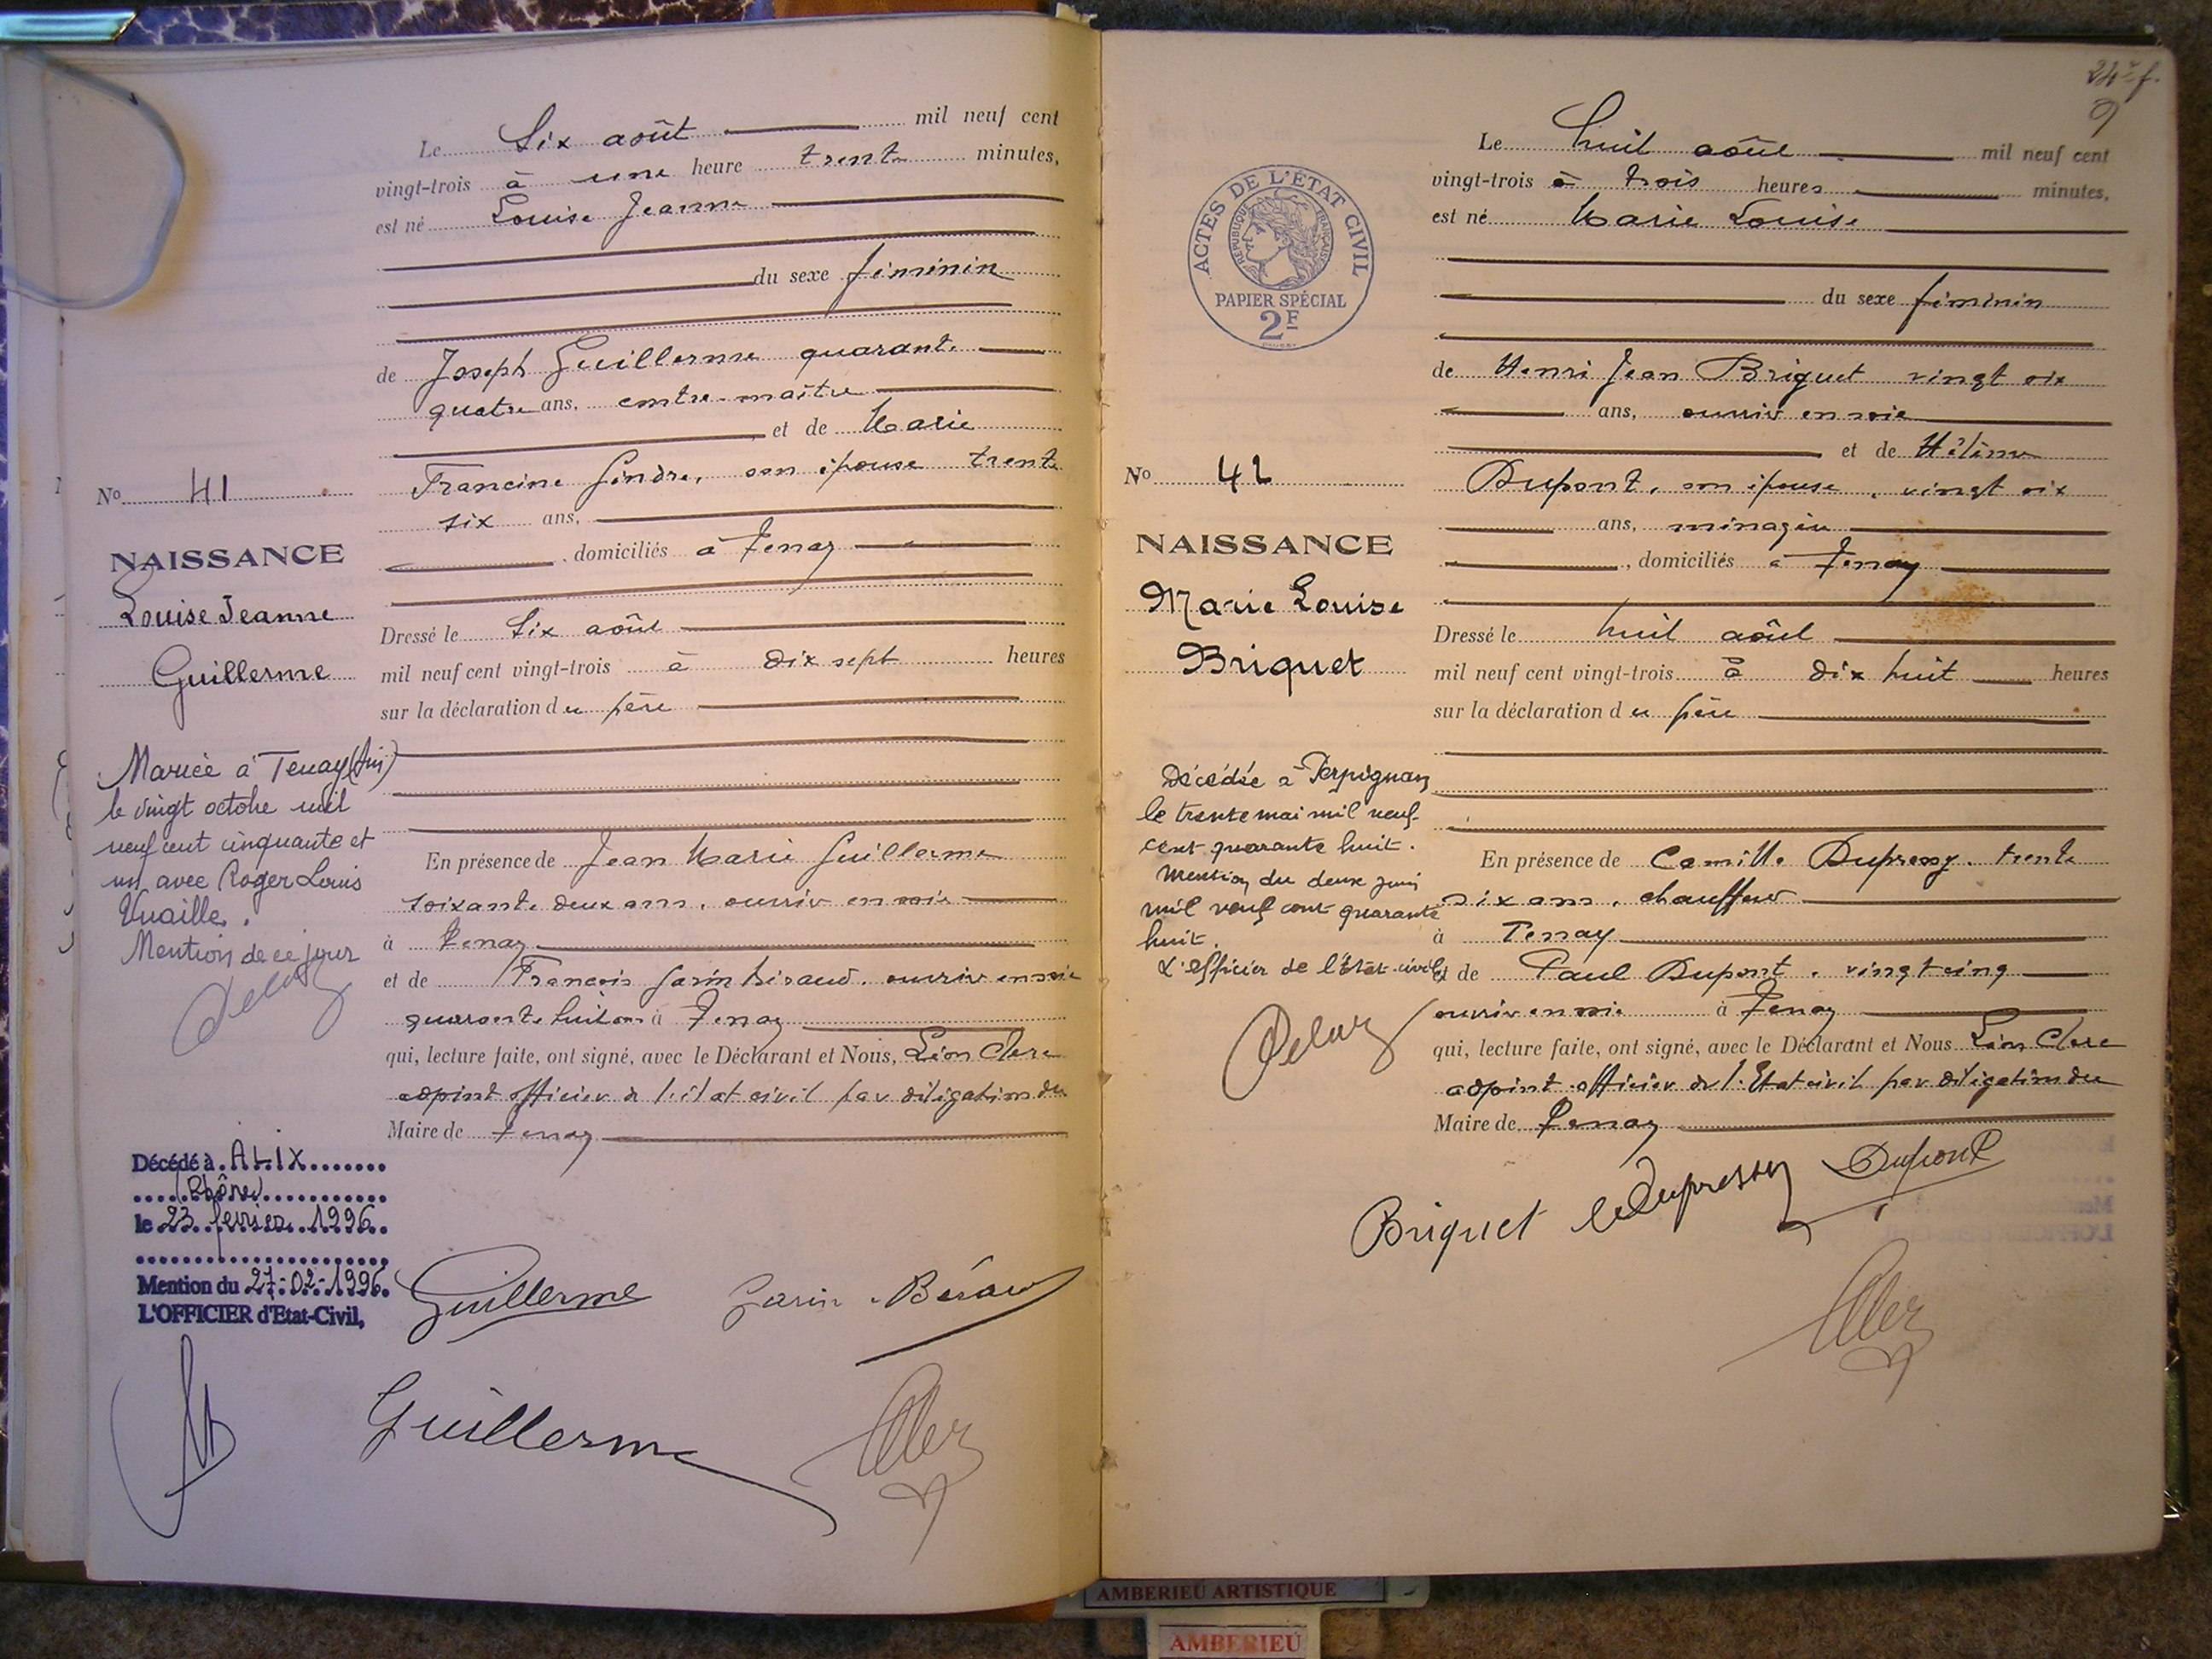 Le Six août mil neuf cent
vingt-trois à une heure trente minutes,
est né Louise Jeanne
du sexe féminin
de Joseph Guillerme quarante
quatre ans, contre-maître
et de Marie
Francine Gindre, son épouse trente
six ans,
, domiciliés à Tenay
No 41
NAISSANCE
Louise Jeanne
Guillerme
Dressé le Six août
mil neuf cent vingt-trois à dix sept heures
sur la déclaration du père
Mariée à Tenay (Ain)
le vingt octobre mil
neuf cent cinquante et
un avec Roger Louis
Vuaille.
Mention de ce jour
En présence de Jean Marie Guillerme
soixante deux ans, ouvrier en soie
à Tenay
et de François Garin Béraud, ouvrier en soie
quarante huit ans à Tenay
qui, lecture faite, ont signé, avec le Déclarant et Nous, Léon Clerc
adjoint officier de l'état civil par délégation du
Maire de Tenay
Décédé à ALIX
(Rhône)
le 23 février 1996
Mention du 27-02-1996
L'OFFICIER d'Etat-Civil,
Guillerme Garin-Béraud
Guillerme
24e f.
Le huit août mil neuf cent
vingt-trois à trois heures minutes,
est né Marie Louise
ACTES DE L'ÉTAT CIVIL
RÉPUBLIQUE FRANÇAISE
PAPIER SPÉCIAL
2F
du sexe féminin
de Henri Jean Briquet vingt six
ans, ouvrier en soie
et de Hélène
Dupont, son épouse, vingt six
ans, ménagère
, domiciliés à Tenay
No 42
NAISSANCE
Marie Louise
Briquet
Dressé le huit août
mil neuf cent vingt-trois à dix huit heures
sur la déclaration du père
Décédée à Perpignan
le trente mai mil neuf
cent quarante huit.
Mention du deux juin
mil neuf cent quarante
huit.
L'officier de l'État-civil
En présence de Camille Dupressy, trente
six ans, chauffeur
à Tenay
et de Paul Dupont, vingt cinq
ouvrier en soie à Tenay
qui, lecture faite, ont signé, avec le Déclarant et Nous Léon Clerc
adjoint officier de l'Etat civil par délégation du
Maire de Tenay
Briquet Dupressy Dupont
AMBERIEU ARTISTIQUE
AMBERIEU